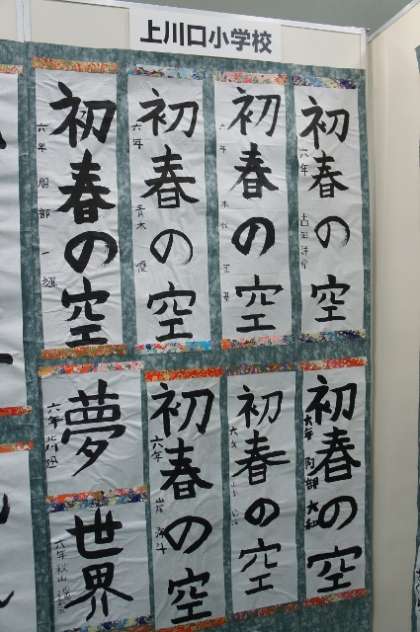 上川口小学校
初春の空
六年 服部一雄
初春の空
六年 青木優
初春の空
六年
初春の空
六年 吉田
夢
六年
世界
六年 秋山
初春の空
六年 岸
初春の空
六年
初春の空
六年 阿部大和